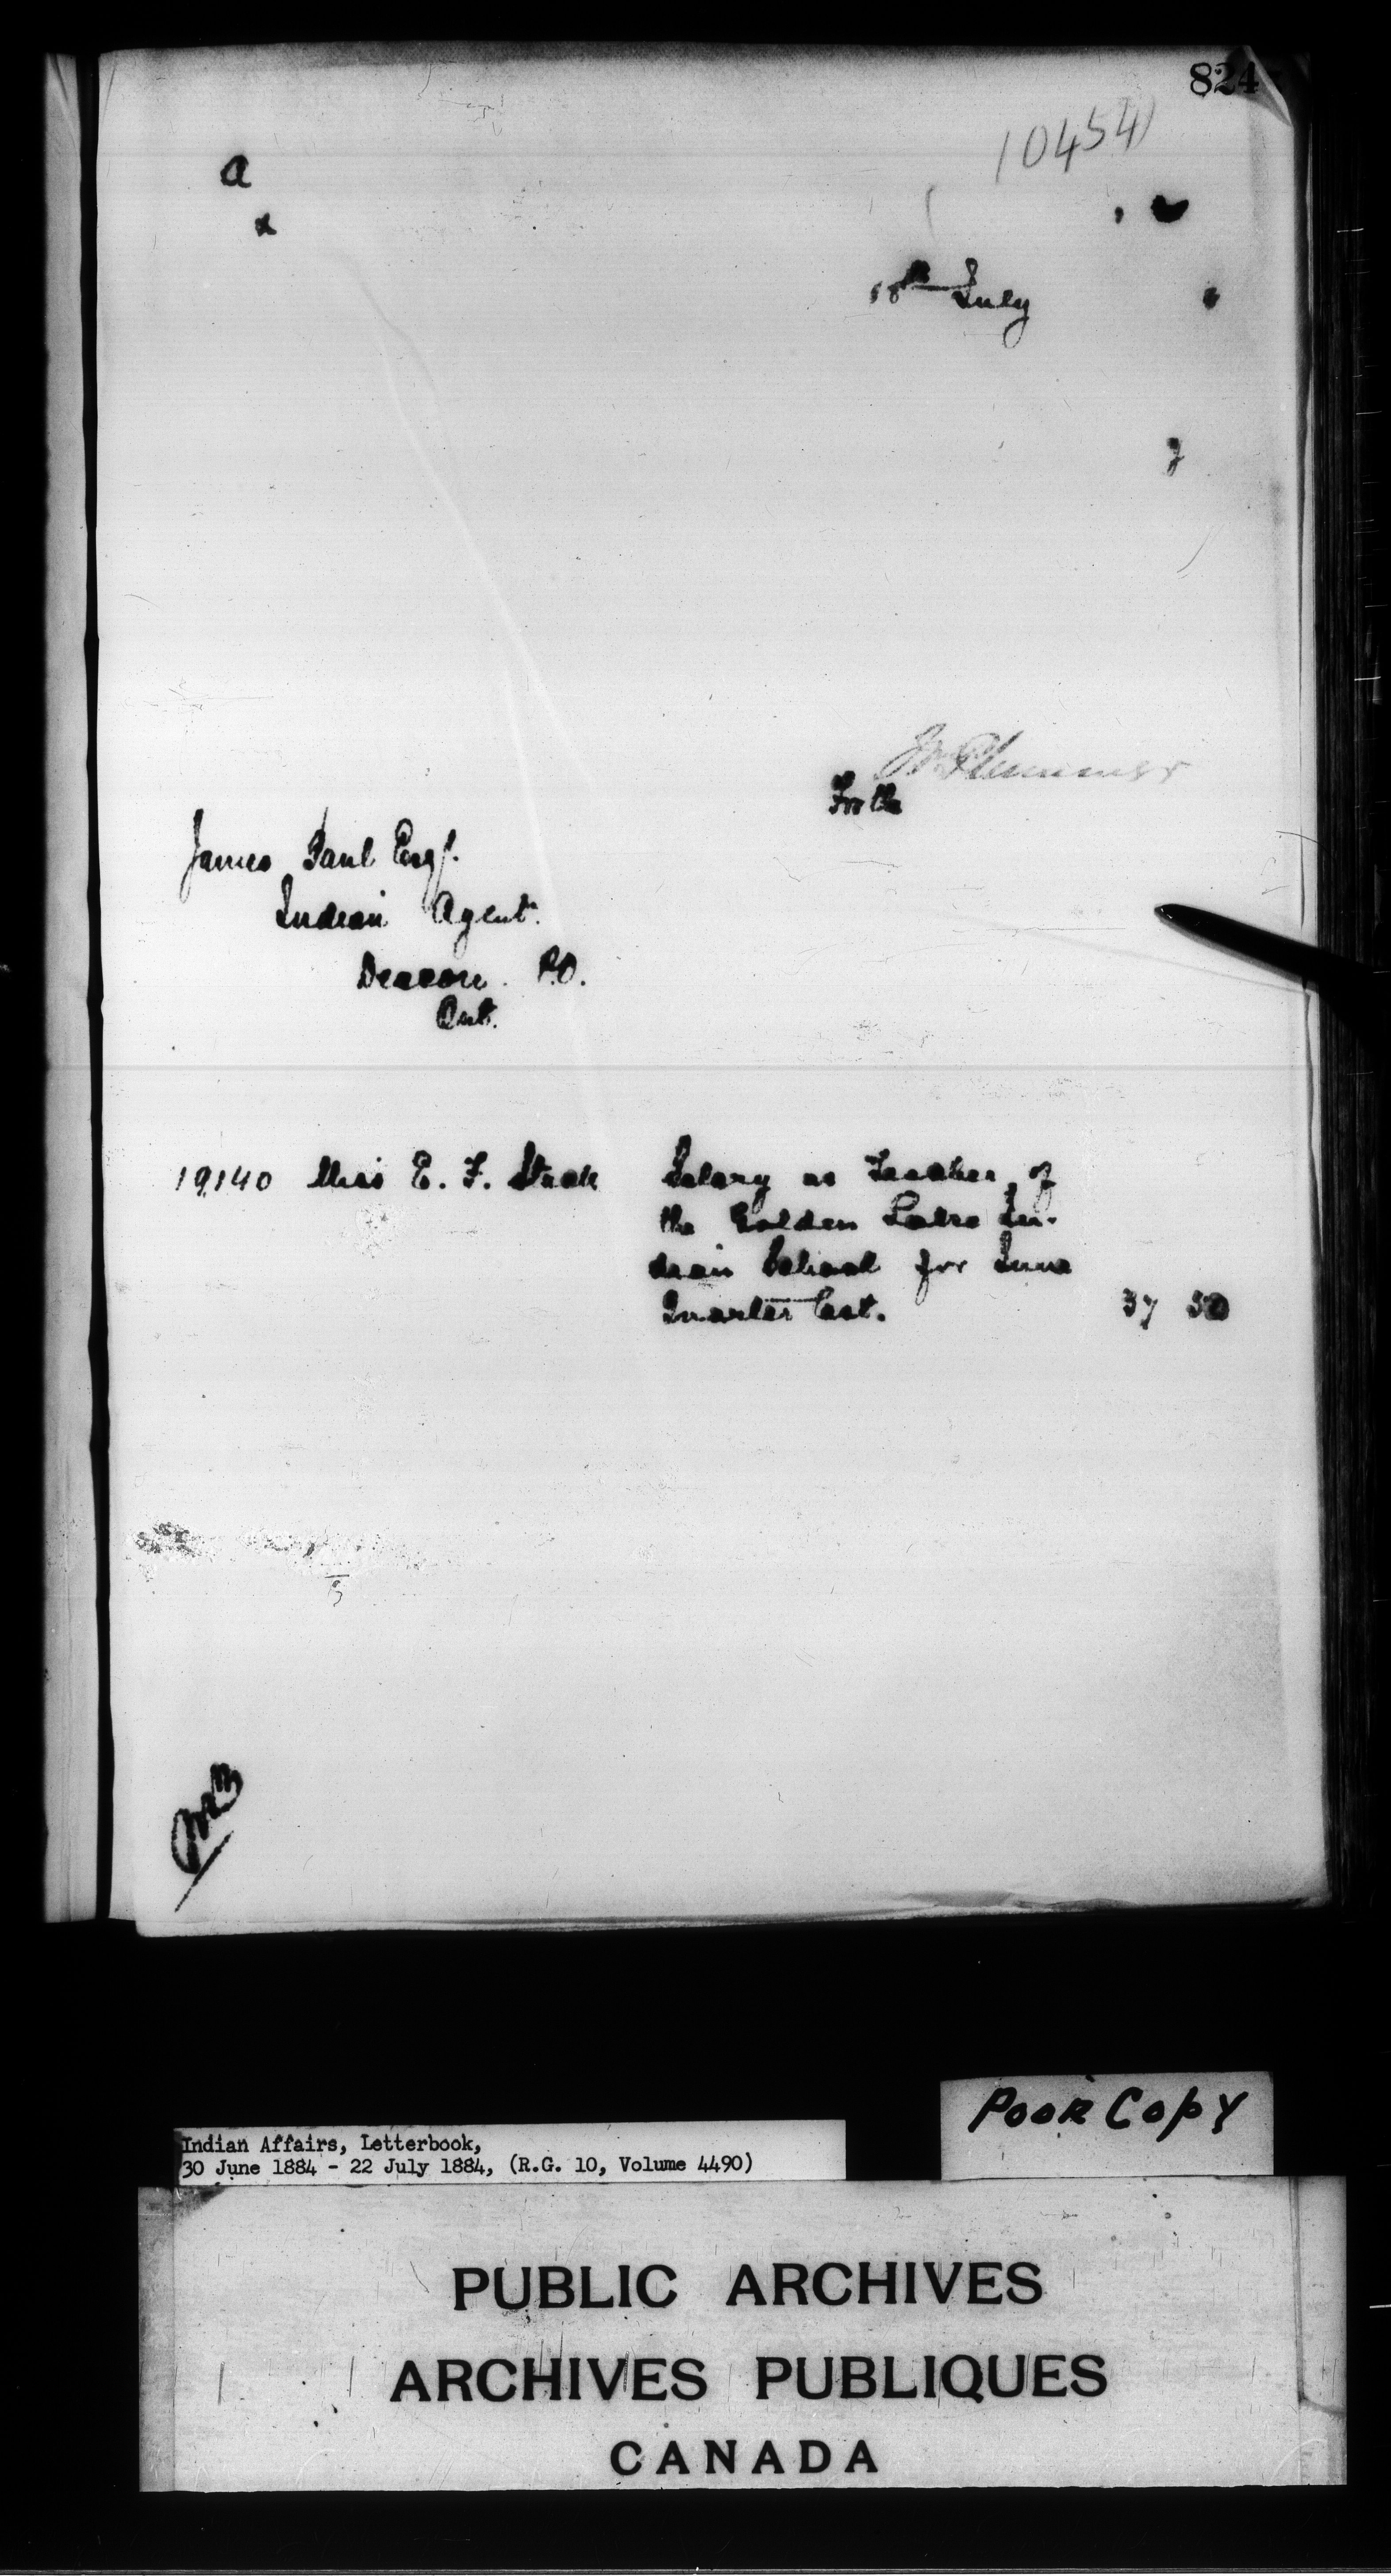 824
10454
a
a
18th July
J. V. Plummer
For the
James Paul Esq.
Indian Agent.
Deacon. P.O.
Ont.
19,140 Miss E. F. Stack Salary as Teacher of
the Golden Lake In-
dian School for June
Quarter last. 37 50
Poor Copy
Indian Affairs, Letterbook,
30 June 1884 - 22 July 1884, (R.G. 10, Volume 4490)
PUBLIC ARCHIVES
ARCHIVES PUBLIQUES
CANADA